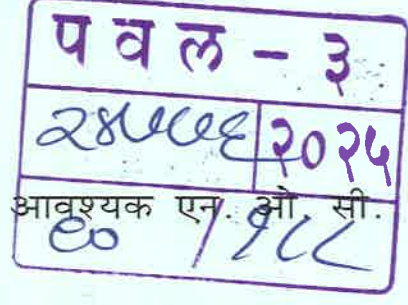 प व ल - ३
२४७७६ २०२५
आवश्यक एन. ओ. सी.
/ १८८